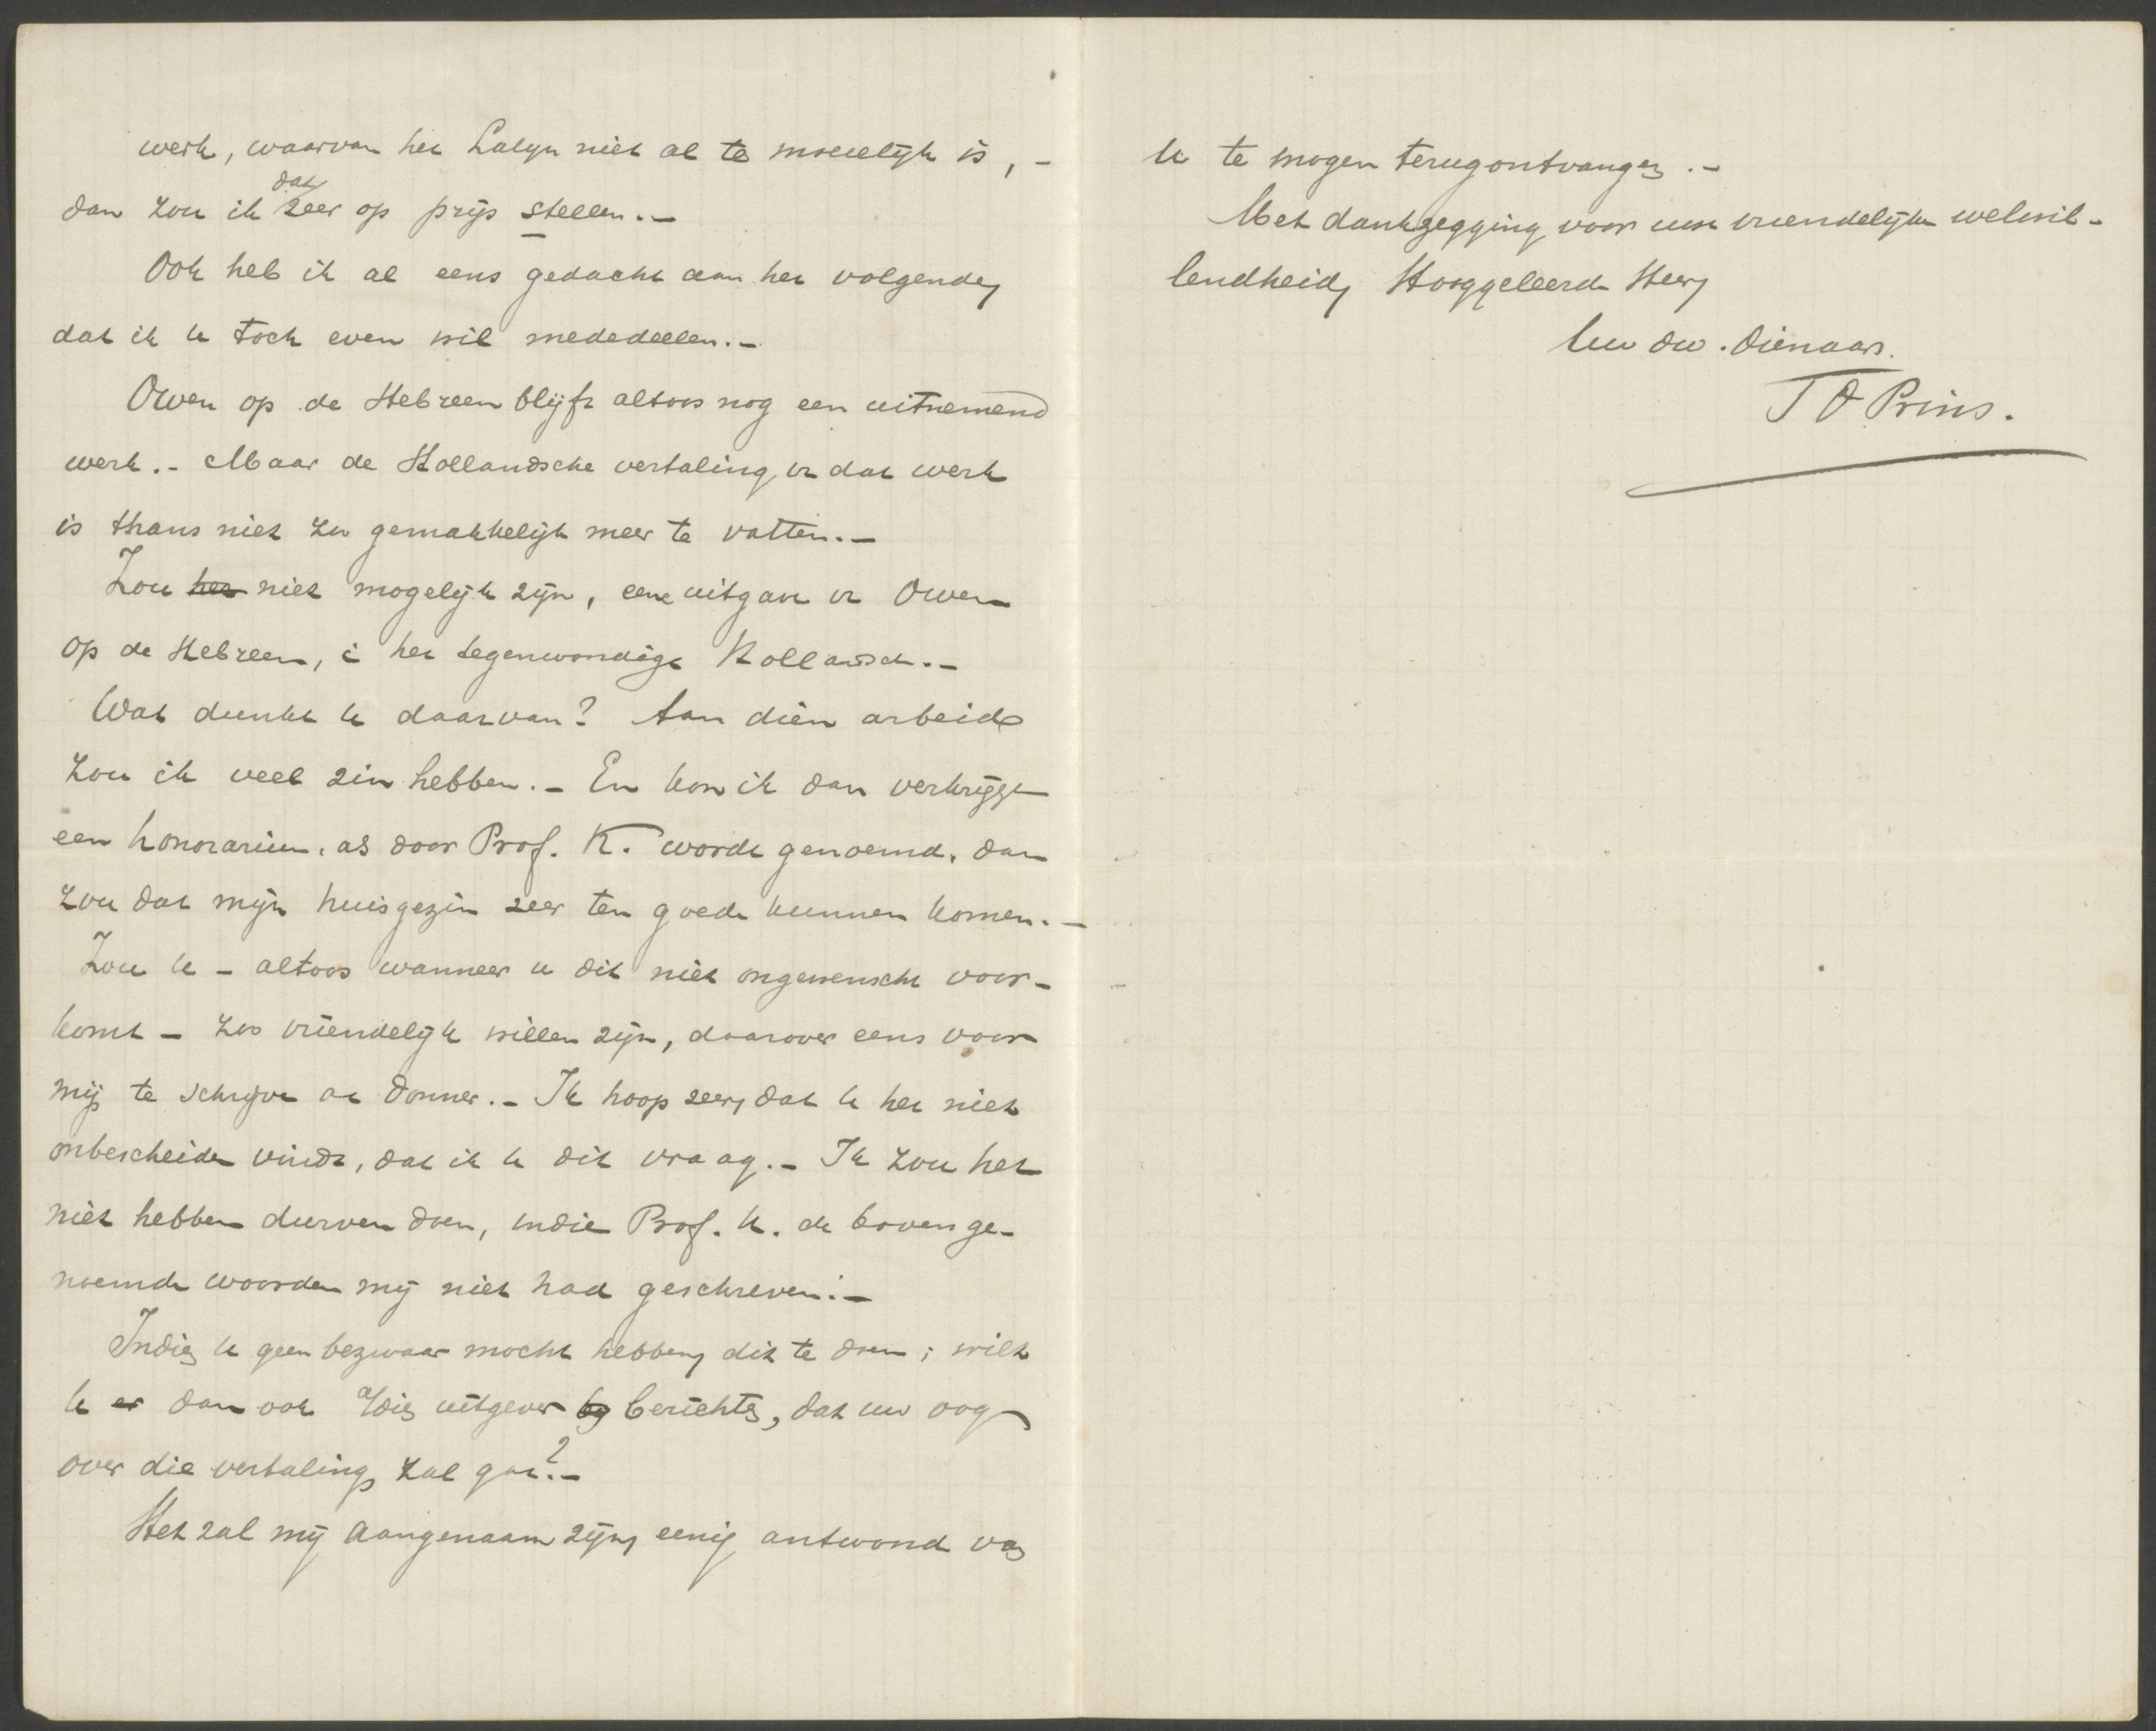 werk, waarvan het Latijn niet al te moeielijk is, -
dan zou ik dat zeer op prijs stellen. -
Ook heb ik al eens gedacht aan het volgende,
dat ik U toch even wil mededeelen. -
Owen op de Hebreen blijft altoos nog een uitnemend
werk. - Maar de Hollandsche vertaling v dat werk
is thans niet zoo gemakkelijk meer te vatten. -
Zou het niet mogelijk zijn, eene uitgave v Owen
op de Hebreen, i het tegenwoordige Hollandsch. -
Wat dunkt U daarvan? Aan dien arbeid
zou ik veel zin hebben. - En kon ik dan verkrijgen
een honorarium, als door Prof. K. wordt genoemd, dan
zou dat mijn huisgezin zeer ten goede kunnen komen. -
Zou U - altoos wanneer u dit niet ongewenscht voor-
komt - zoo vriendelijk willen zijn, daarover eens voor
mij te schrijven aan Donner. - Ik hoop zeer, dat U het niet
onbescheiden vindt, dat ik U dit vraag. - Ik zou het
niet hebben durven doen, indien Prof. K. de bovenge-
noemde woorden mij niet had geschreven. -
Indien U geen bezwaar mocht hebben, dit te doen; wilt
U er dan ook a/dien uitgever bij berichten, dat uw oog
over die vertaling zal gaan? -
Het zal mij aangenaam zijn, eenig antwoord van
U te mogen terugontvangen. -
Met dankzegging voor uwe vriendelijke welwil-
lendheid, Hooggeleerde Heer,
Uw dw. dienaar.
J O Prins.